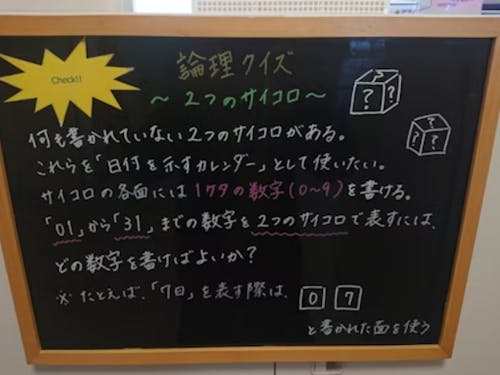 Check!!
論理クイズ
～2つのサイコロ～
何も書かれていない2つのサイコロがある。
これらを「日付を示すカレンダー」として使いたい。
サイコロの各面には1ケタの数字(0～9)を書ける。
「01」から「31」までの数字を2つのサイコロで表すには、
どの数字を書けばよいか？
※たとえば、「7日」を表す際は、 0 7
と書かれた面を使う
? ? ?
? ? ?